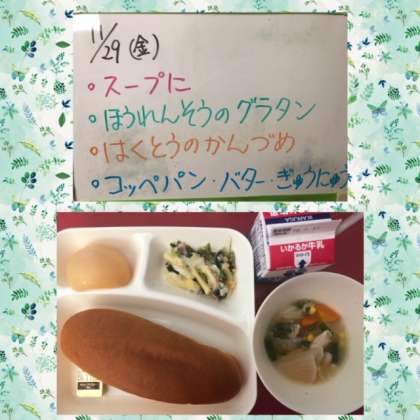 11/29(金)
・スープに
・ほうれんそうのグラタン
・はくとうのかんづめ
・コッペパン・バター・ぎゅうにゅう
いかるが牛乳